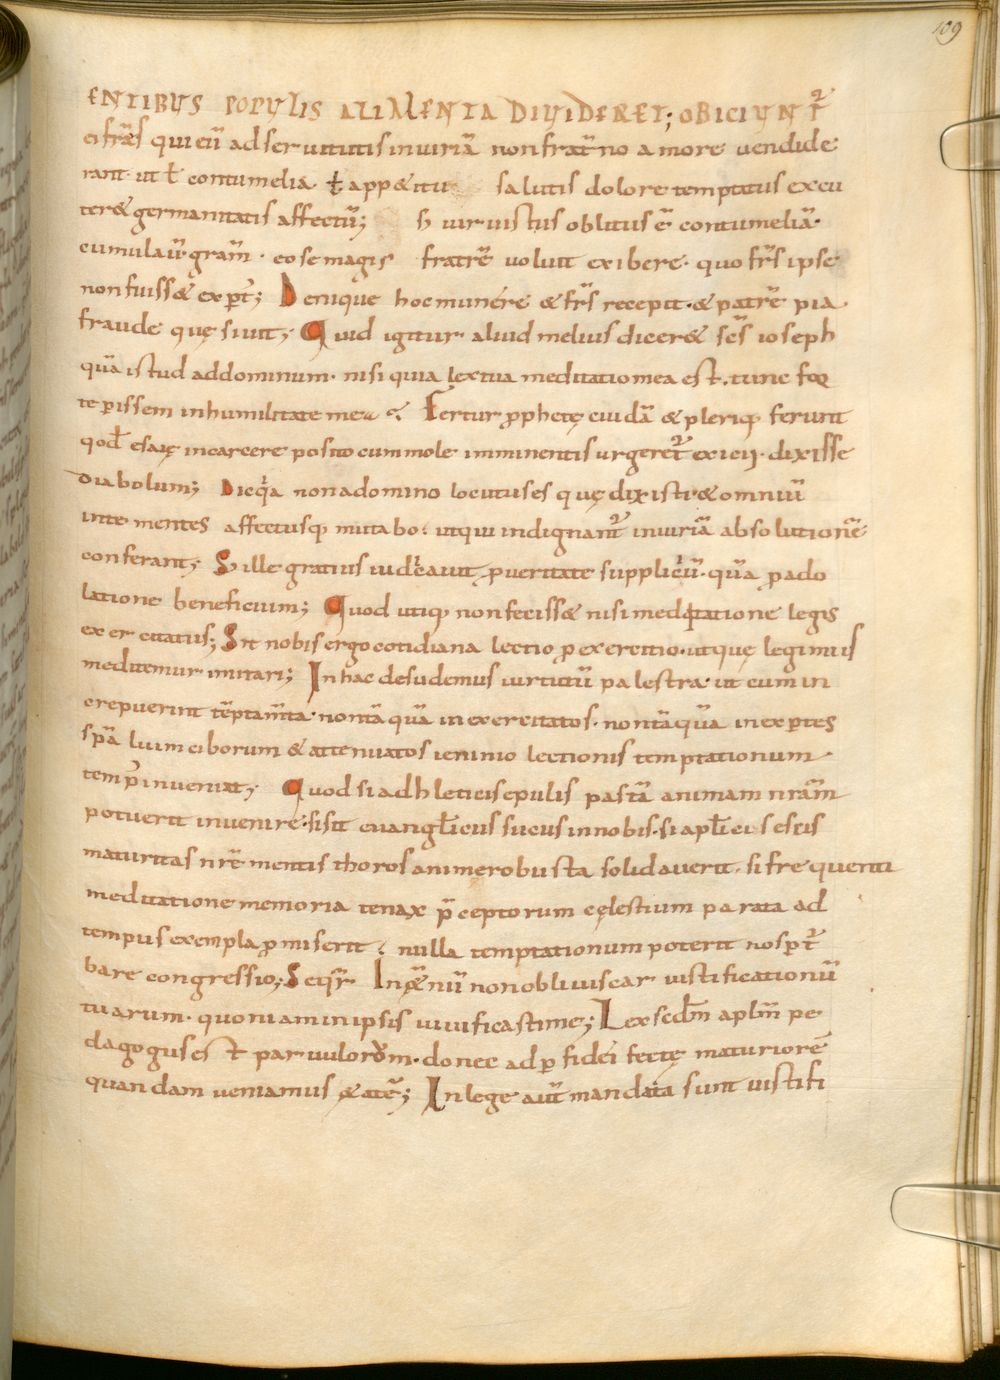 109
ENTIBUS POPULIS ALIMENTA DIVIDERET; OBICIUNT᷑
ei fr̄s qui eū ad seruitutis iniuriā non frat̄no amore uendide
rant· ut ł contumelia· ł app&itu salutis dolore temptatus excu
ter& germanitatis affectū; s; uir iustus oblitus ē contumeliā·
cumulauit grām· eo se magis fratrē uoluit exibere· quo fr̄s ipse
non fuiss& exp̄t; Denique hoc munere & fr̄s recepit· & patrē pia
fraude quęsiuit; Quid igitur aliud melius dicer& sc̄s ioseph
quā istud ad dominum· nisi quia lex tua meditatio mea est· tunc for
te perissem in humilitate mea? Fertur prophetę cuidā & pleriq; ferunt
qod esaię in carcere posito cum mole imminentis urgeret᷑ exicii· dixisse
diabolum; Dic q̇a non a domino locutus es quę dixisti & omniū
in te mentes affectusq; mutabo· ut qui indignant᷑ iniuriā absolutionē
conferant; S; ille gratius iudicauit p̱ ueritate suppliciū· quā p̱ ado
latione beneficium; Quod utiq; non feciss& nisi meditatione legis
exercitatus; Sit nobis ergo cotidiana lectio p̱ exercitio· ut quę legimus
meditemur imitari; In hac desudemus uirtutū palestra· ut cum in
crepuerint tēptam̄ta· non tāquā inexercitatos· non tāquā inexp̱tes
sp̄alium ciborum & attenuatos ieiunio lectionis temptationum
temp̄ inueniat; Quod si adhleticis epulis pastā animam nrām
potuerit inuenire· si sit euangłicus sucus in nobis· si apłicis escis
maturitas nr̄e mentis thoros anime robusta solidauerit· si frequenti
meditatione memoria tenax p̄ceptorum cęlestium parata ad
tempus exempla p̱miserit? nulla temptationum poterit nos p̱t᷑
bare congressio; Sequr̄ In &̄nū non obliuiscar iustificationū
tuarum· quoniam in ipsis uiuificasti me; Lex sedm̄ aplm̄ pe
dagogus est paruulorum· donec ad p̱fidei fectę maturiorē
quandam ueniamus &atē; In lege aut̄ mandata sunt iustifi